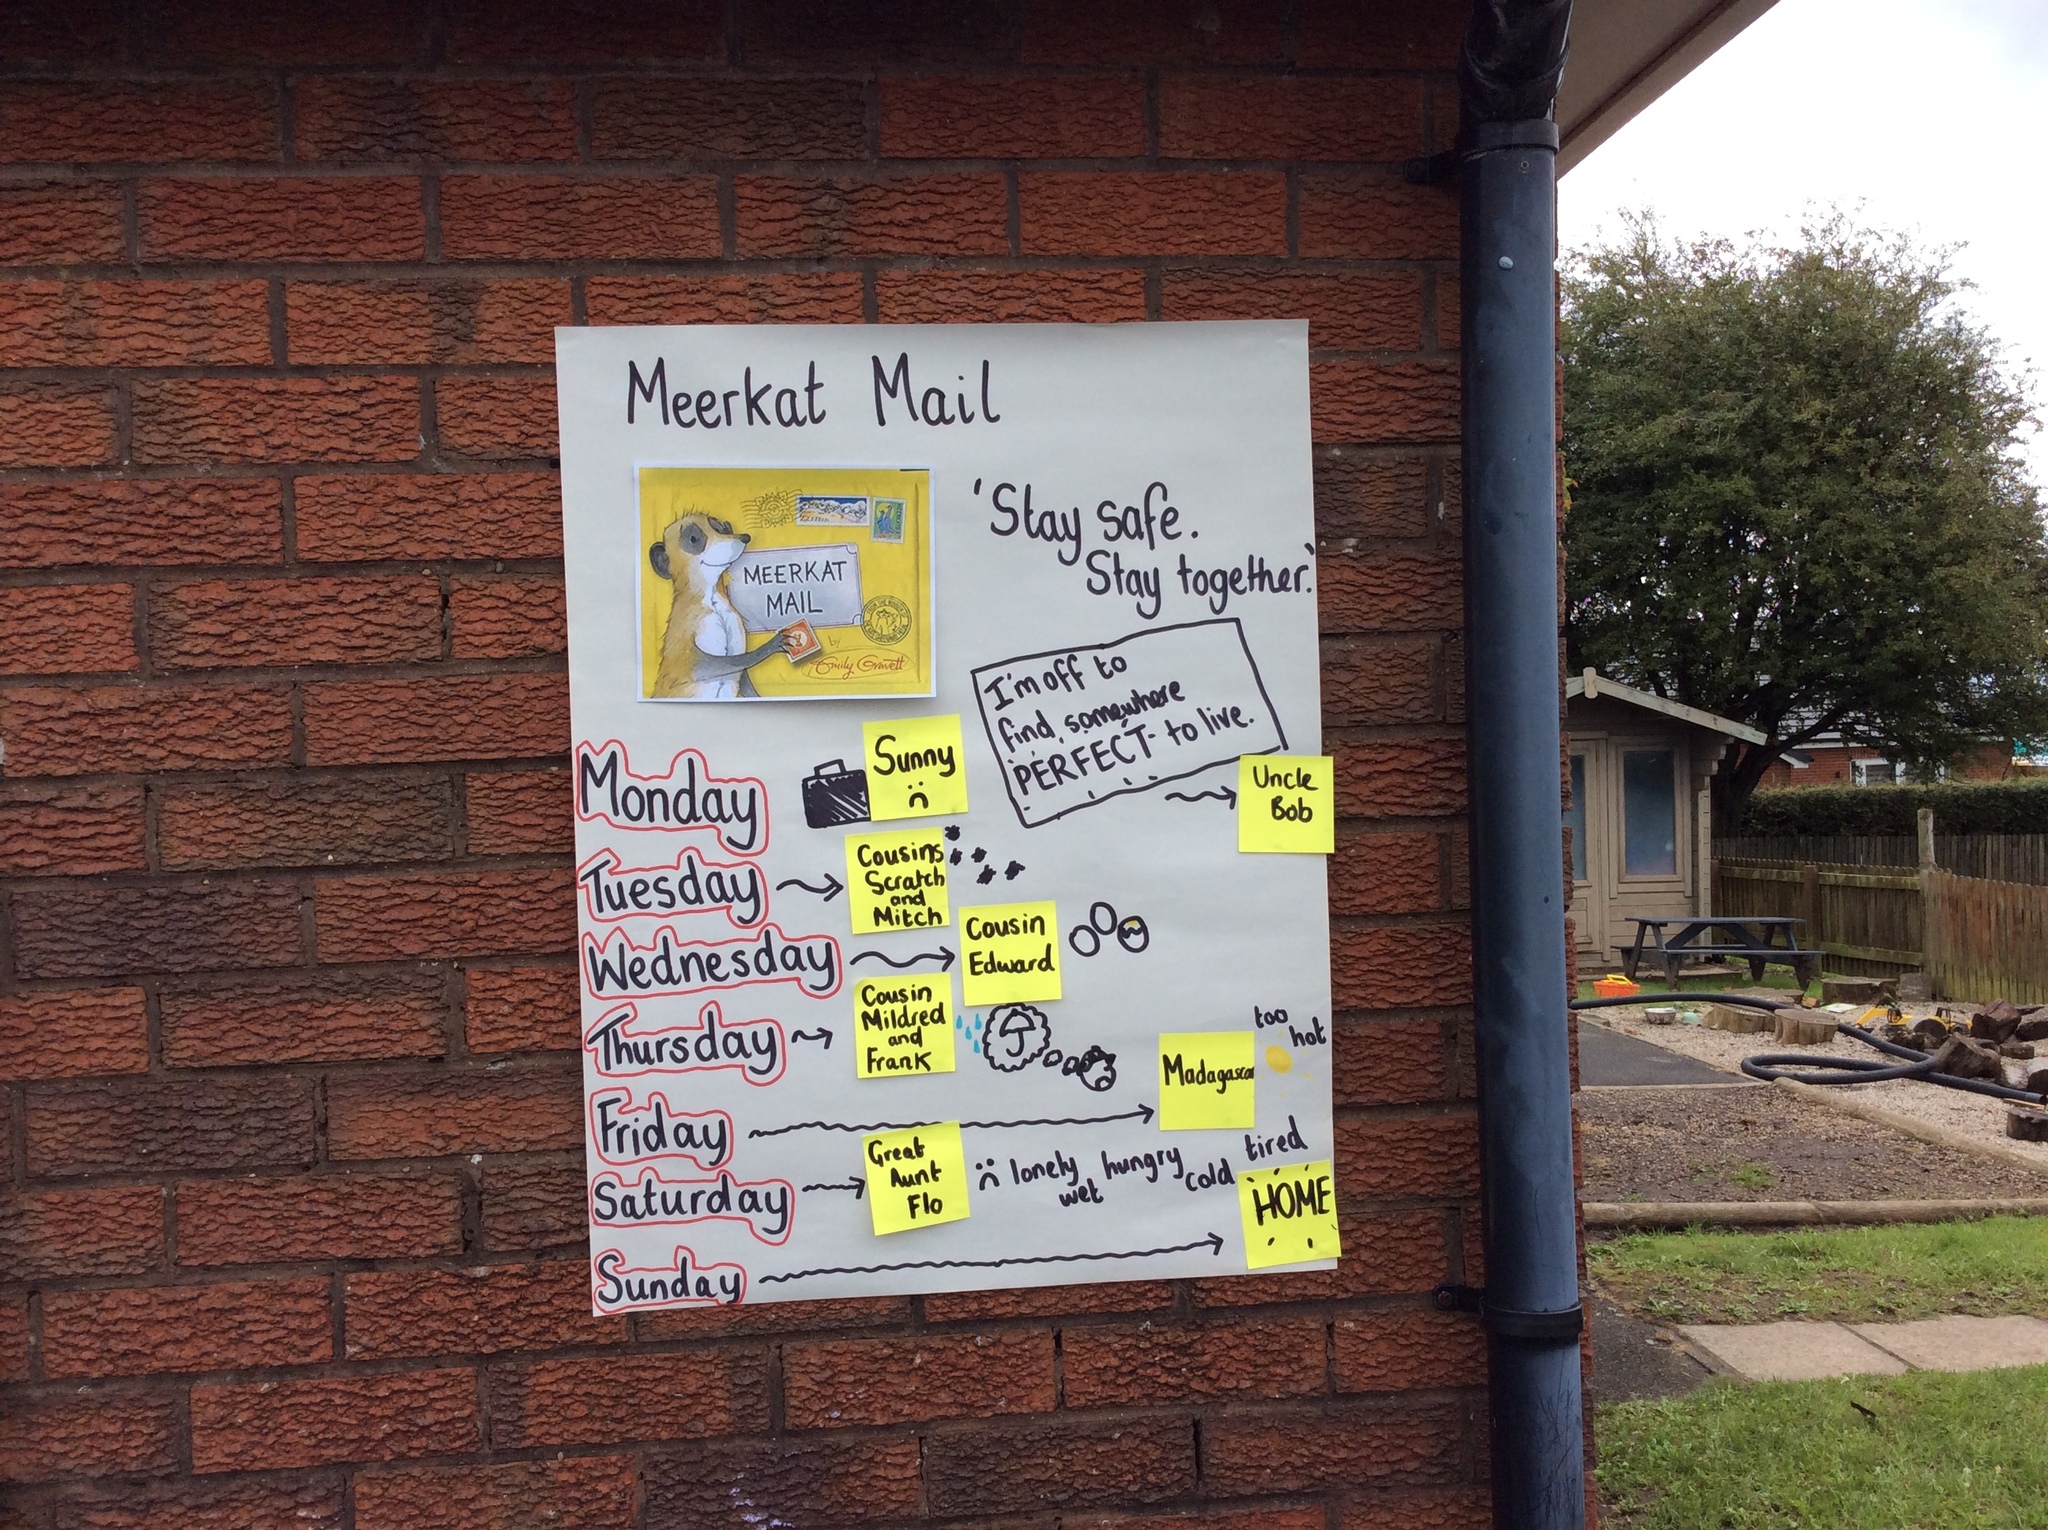 Meerkat Mail
'Stay safe.
Stay together.'
MEERKAT
MAIL
by
Emily Gravett
I'm off to
find somewhere
PERFECT to live.
Monday
Sunny
Uncle
Bob
Tuesday
Cousins
Scratch
and
Mitch
Wednesday
Cousin
Edward
Thursday
Cousin
Mildred
and
Frank
Friday
Madagascar
too
hot
Saturday
Great
Aunt
Flo
lonely
wet
hungry
cold
tired
Sunday
HOME